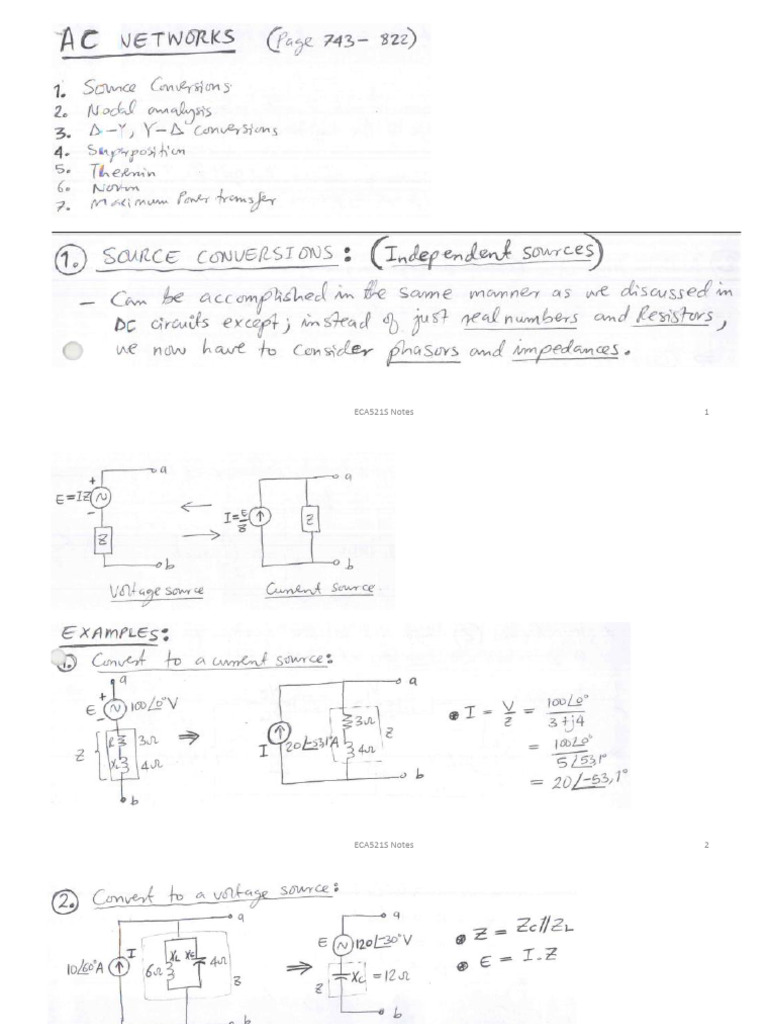 AC NETWORKS (Page 743 - 822)
1. Source Conversions
2. Nodal analysis
3. Δ-Y, Y-Δ conversions
4. Superposition
5. Thevnin
6. Norton
7. Maximum Power transfer
1. SOURCE CONVERSIONS: (Independent sources)
- Can be accomplished in the same manner as we discussed in
DC circuits except; instead of just real numbers and Resistors,
we now have to consider phasors and impedances.
ECA521S Notes 1
a
+
E=IZ
-
Z
b
Voltage source
a
I=E/Z
Z
b
Current source
EXAMPLES:
1. Convert to a current source:
a
+
E 100∠0°V
-
Z
R 3Ω
XL 4Ω
b
⇒
a
I 20∠-53,1°A
3Ω
4Ω
Z
b
• I = V/Z = 100∠0° / 3+j4
= 100∠0° / 5∠53,1°
= 20∠-53,1°
ECA521S Notes 2
2. Convert to a voltage source:
a
10∠60°A I
6Ω XL XC 4Ω
Z
b
⇒
a
E 120∠-30°V
Z XC = 12Ω
b
• Z = ZC//ZL
• E = I.Z